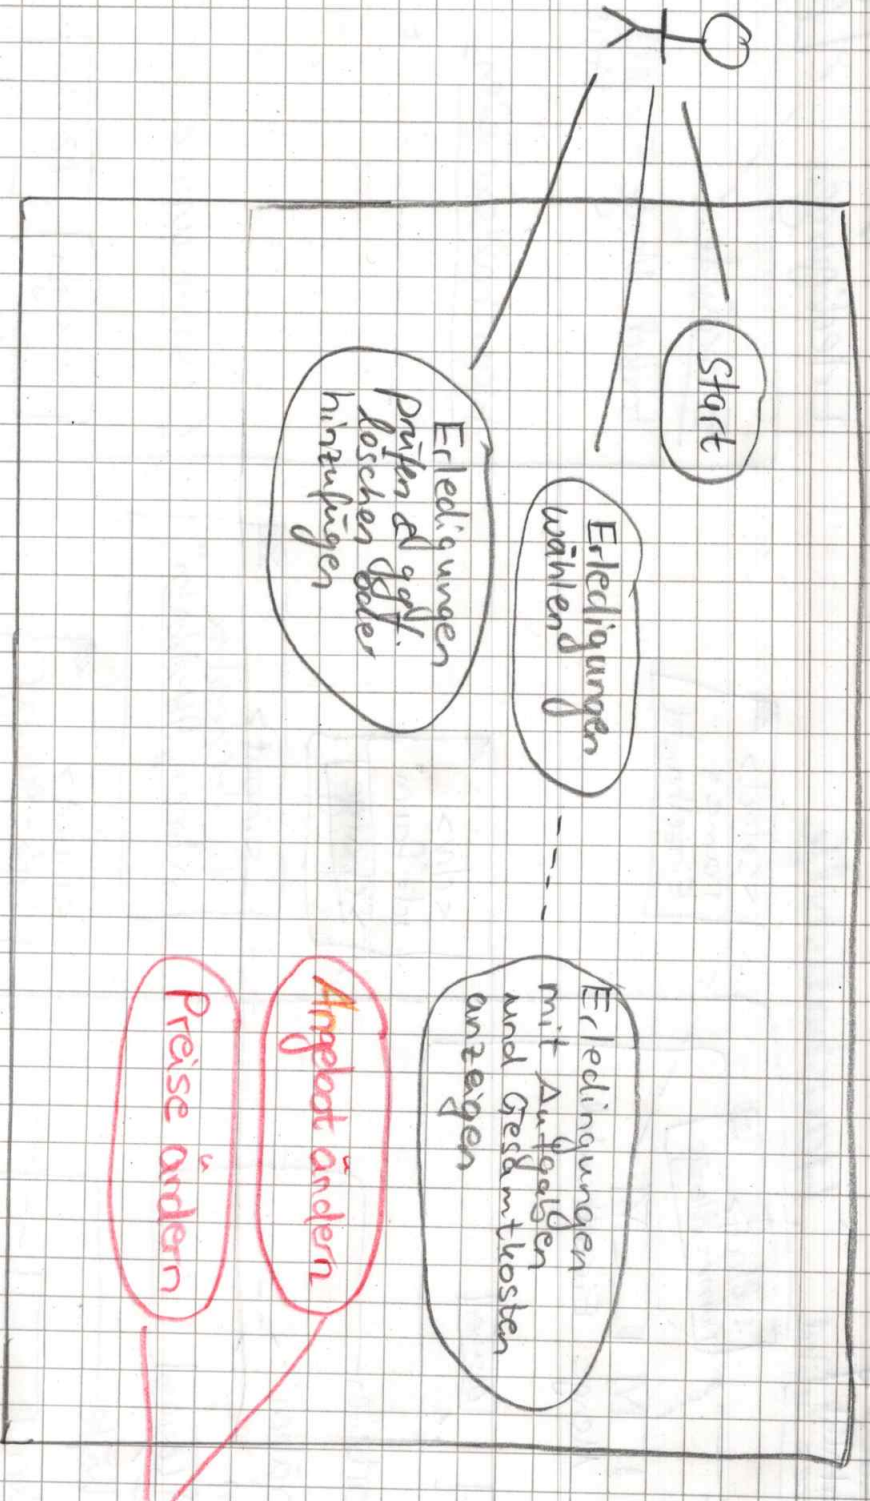 Start
Erledigungen
wählen
Erledigungen
prüfen & ggf.
löschen oder
hinzufügen
Erledingungen
mit Aufgaben
und Gesamtkosten
anzeigen
Angebot ändern
Preise ändern